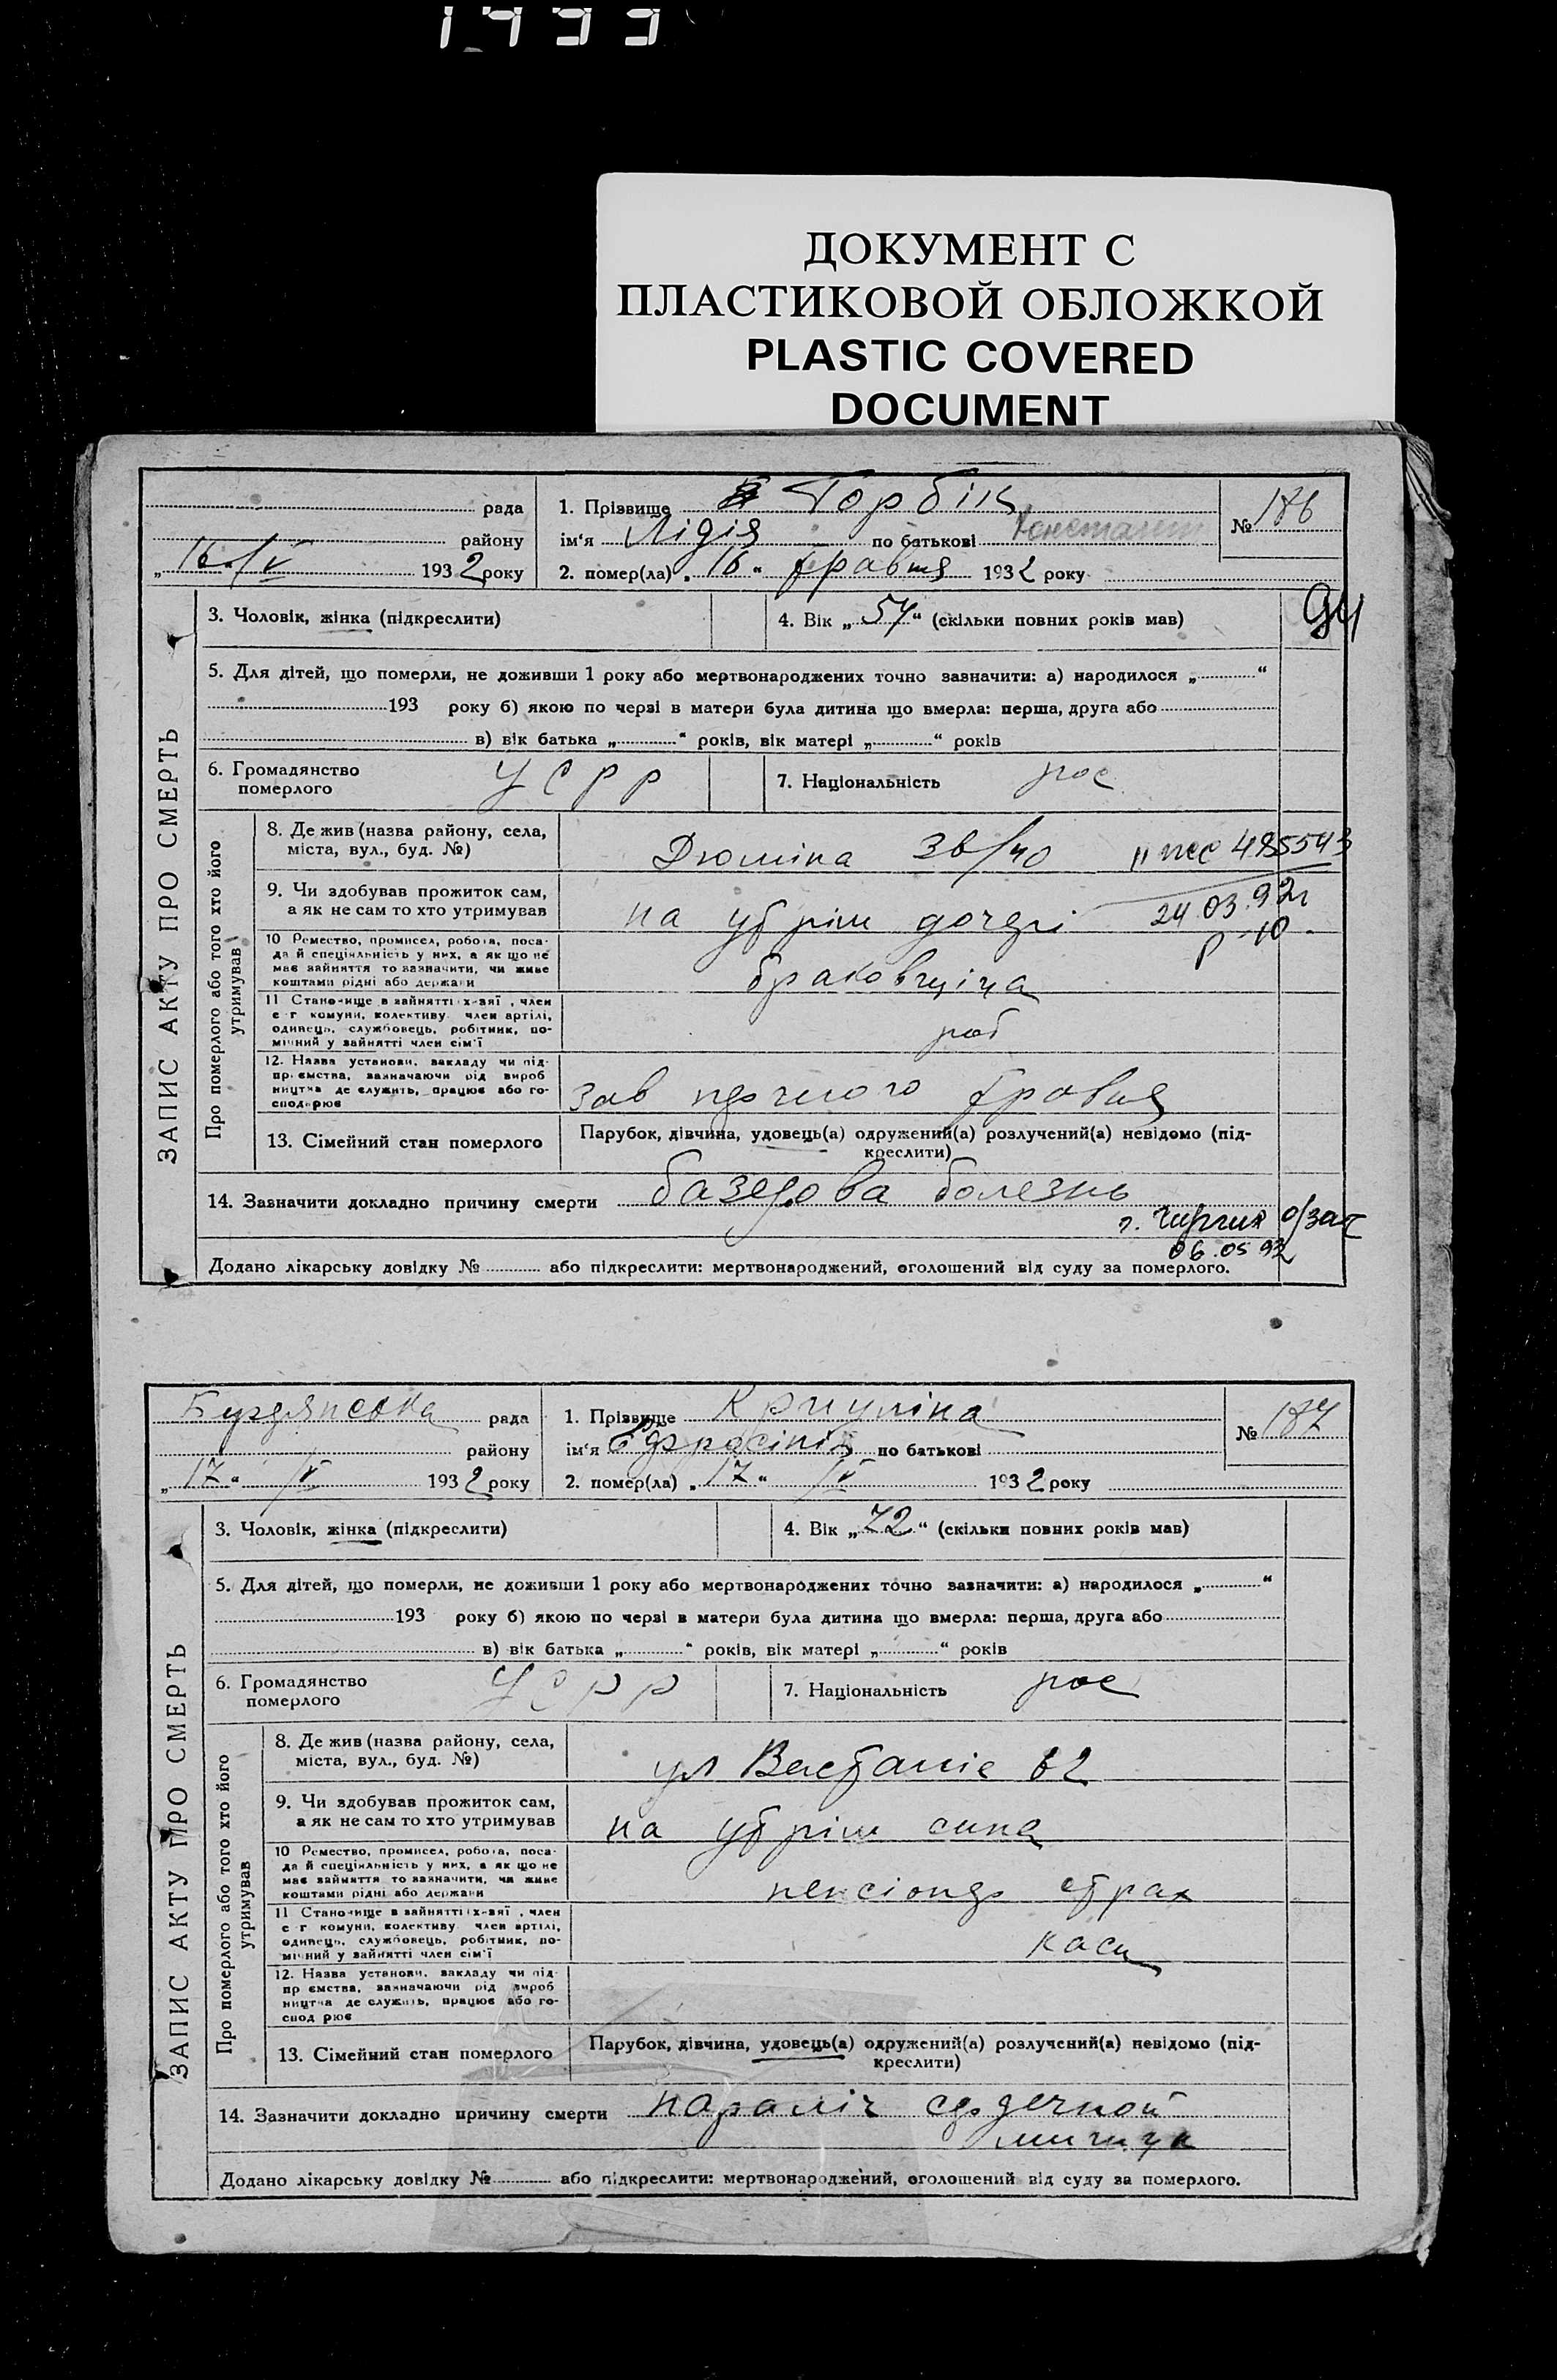 1433
ДОКУМЕНТ С
ПЛАСТИКОВОЙ ОБЛОЖКОЙ
PLASTIC COVERED
DOCUMENT
рада
району
„ 16 / V 1932 року
1. Прізвище Горбіна
ім‘я Лідія по батькові Констант
2. помер(ла) „ 16 “ травня 1932 року
№ 186
3. Чоловік, жінка (підкреслити)
4. Вік „ 54 “ (скільки повних років мав)
94
5. Для дітей, що померли, не доживши 1 року або мертвонароджених точно зазначити: а) народилося „ “
193 року б) якою по черзі в матери була дитина що вмерла: перша, друга або
в) вік батька „ “ років, вік матері „ “ років
6. Громадянство
померлого
УСРР
7. Національність рос
ЗАПИС АКТУ ПРО СМЕРТЬ
Про померлого або того хто його
утримував
8. Де жив (назва району, села,
міста, вул., буд. №)
Дюміна 36/40
485543
24.03.92г
9. Чи здобував прожиток сам,
а як не сам то хто утримував
на утрім дочері
р-10
10 Ремество, промисел, робота, поса-
да й спеціяльність у них, а як що не
має зайняття то зазначити, чи живе
коштами рідні або держави
браковщіца
11 Становище в зайнятті: х-зяї , член
с г комуни, колективу член артілі,
одинець, службовець, робітник, по-
мічний у зайнятті член сім‘ї
роб
12. Назва установи, закладу чи під-
пр ємства, зазначаючи рід вироб
ництва де служить, працює або го-
сподарює
зав першого травня
13. Сімейний стан померлого
Парубок, дівчина, удовець(а) одружений(а) розлучений(а) невідомо (під-
креслити)
14. Зазначити докладно причину смерти базедова болезнь
о/заг
06.05 92
Додано лікарську довідку № або підкреслити: мертвонароджений, оголошений від суду за померлого.
Бердянська рада
району
„ 17 “ IV 1932 року
1. Прізвище
ім‘я Єфросінія по батькові
2. помер(ла) „ 17 “ IV 1932 року
№ 187
3. Чоловік, жінка (підкреслити)
4. Вік „ 72 “ (скільки повних років мав)
5. Для дітей, що померли, не доживши 1 року або мертвонароджених точно зазначити: а) народилося „ “
193 року б) якою по черзі в матери була дитина що вмерла: перша, друга або
в) вік батька „ “ років, вік матері „ “ років
6. Громадянство
померлого
УСРР
7. Національність рос
ЗАПИС АКТУ ПРО СМЕРТЬ
Про померлого або того хто його
утримував
8. Де жив (назва району, села,
міста, вул., буд. №)
ул Востаніе 62
9. Чи здобував прожиток сам,
а як не сам то хто утримував
на утрім сина
10 Ремество, промисел, робота, поса-
да й спеціяльність у них, а як що не
має зайняття то зазначити, чи живе
коштами рідні або держави
пенсіонер страх
11 Становище в зайнятті: х-зяї , член
с г комуни, колективу член артілі,
одинець, службовець, робітник, по-
мічний у зайнятті член сім‘ї
каси
12. Назва установи, закладу чи під-
пр ємства, зазначаючи рід вироб
ництва де служить, працює або го-
спод рює
13. Сімейний стан померлого
Парубок, дівчина, удовець(а) одружений(а) розлучений(а) невідомо (під-
креслити)
14. Зазначити докладно причину смерти параліч сердечной
мишци
Додано лікарську довідку № або підкреслити: мертвонароджений, оголошений від суду за померлого.